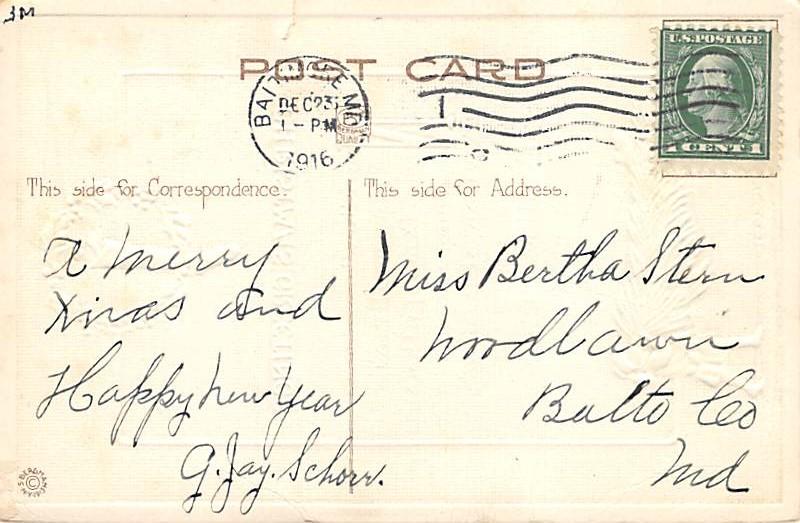 3M
POST CARD
BALTIMORE MD
DEC 23
1-PM
1916
U.S. POSTAGE
1 CENT 1
This side for Correspondence
This side for Address.
A Merry
Xmas and
Happy New Year
G. Jay. Schorr.
Miss Bertha Stern
Woodlawn
Balto Co
Md